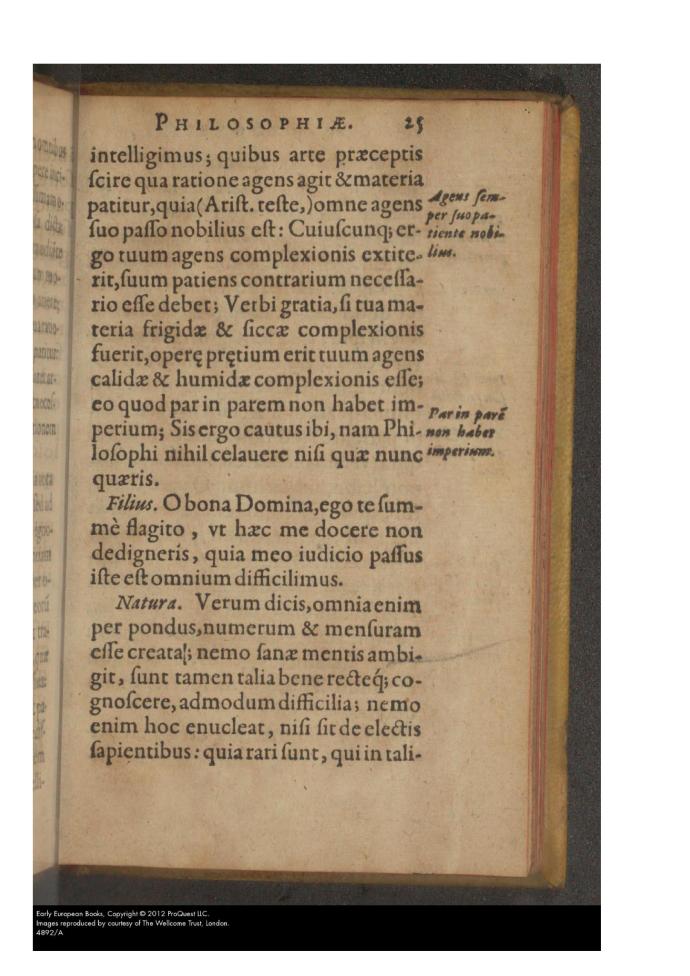 PHILOSOPHIÆ. 25
intelligimus; quibus arte præceptis
ſcire qua ratione agens agit & materia
patitur, quia (Ariſt. teſte,) omne agens
ſuo paſſo nobilius eſt: Cuiuſcunq; er-
go tuum agens complexionis extite-
rit, ſuum patiens contrarium neceſſa-
rio eſſe debet; Verbi gratia, ſi tua ma-
teria frigidæ & ſiccæ complexionis
fuerit, operę pretium erit tuum agens
calidæ & humidæ complexionis eſſe;
eo quod par in parem non habet im-
perium; Sis ergo cautus ibi, nam Phi-
loſophi nihil celauere niſi quæ nunc
quæris.
Filius. O bona Domina, ego te ſum-
mè flagito, vt hæc me docere non
dedigneris, quia meo iudicio paſſus
iſte eſt omnium difficilimus.
Natura. Verum dicis, omnia enim
per pondus, numerum & menſuram
eſſe creata; nemo ſanæ mentis ambi-
git, ſunt tamen talia bene recteq́; co-
gnoſcere, admodum difficilia; nemo
enim hoc enucleat, niſi ſit de electis
ſapientibus: quia rari ſunt, qui in tali-
Agens ſem-
per ſuo pa-
tiente nobi-
lius.
Par in parē
non habet
imperium.
Early European Books, Copyright © 2012 ProQuest LLC.
Images reproduced by courtesy of The Wellcome Trust, London.
4892/A